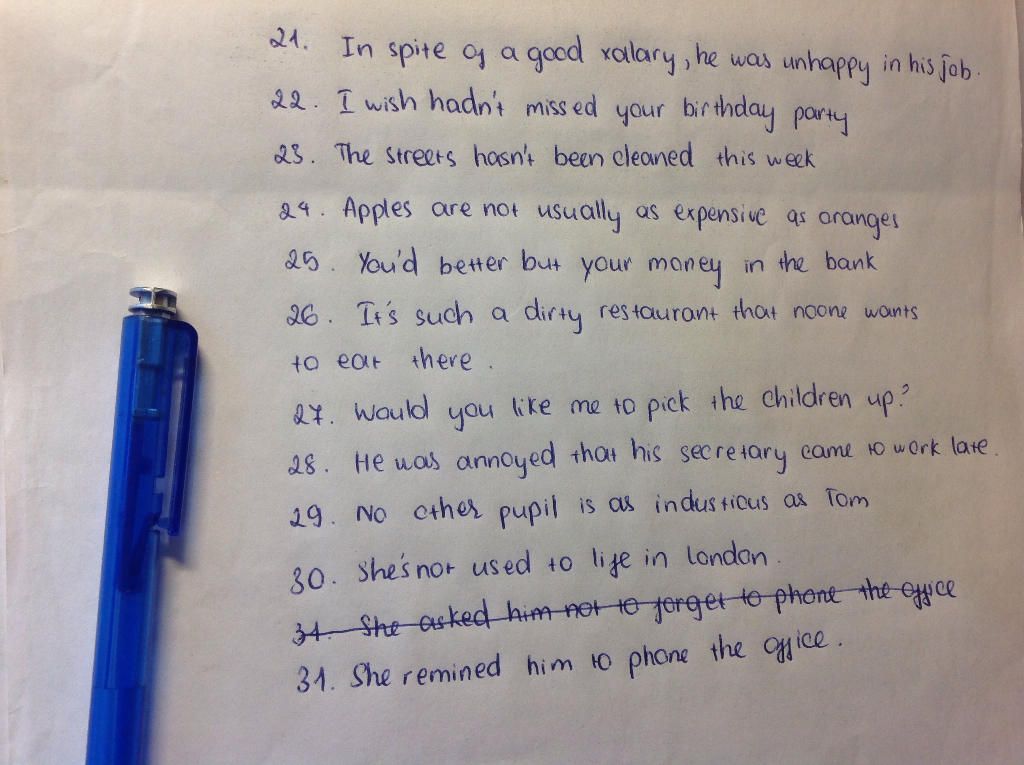 21. In spite of a good xalary, he was unhappy in his job.
22. I wish hadn't missed your birthday party
23. The streets hasn't been cleaned this week
24. Apples are not usually as expensive as oranges
25. You'd better but your money in the bank
26. It's such a dirty restaurant that noone wants
to eat there.
27. Would you like me to pick the children up?
28. He was annoyed that his secretary came to work late.
29. No other pupil is as industious as Tom
30. She's not used to life in London.
31. She asked him not to forget to phone the office
31. She remined him to phone the office.